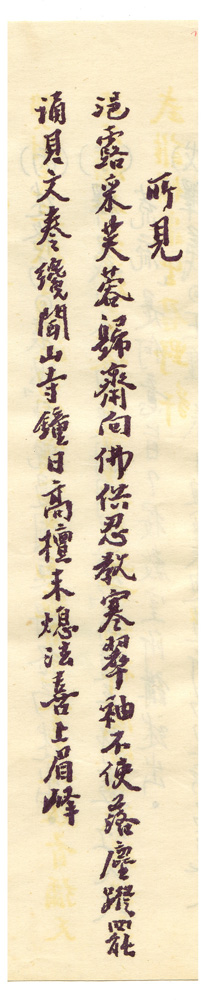 所見
浥露采芙蓉歸齋向佛供忍教寒翠袖不使落塵蹤罷
誦貝文纔聞山寺鐘日高檀未熄法喜上眉峰